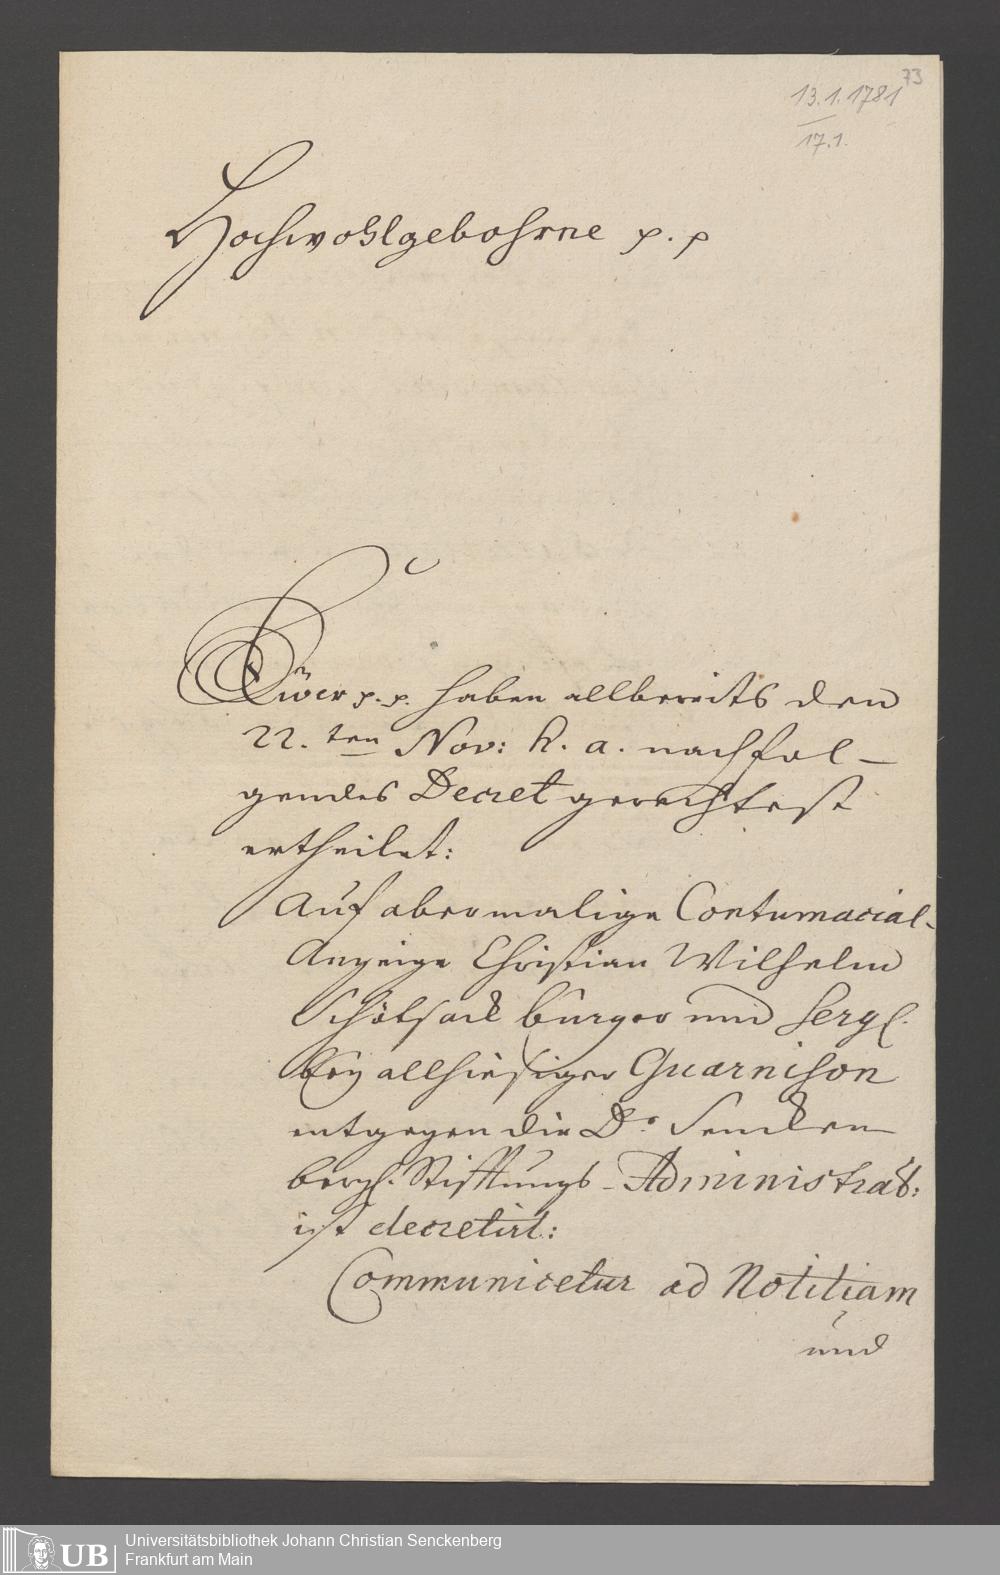 73
13.1.1781
17.1.
Hochwohlgebohrne p. p
Euer p. p. haben allbereits den
22. ten Nov: h. a. nachfol-
gendes Decret gerechtest
ertheilet:
Auf abermalige Contumacial-
Anzeige Christian Wilhelm
burger und Serg.
bey allhiesiger Guarnison
entgegen die Dr. Sencken
bergl. Stiftungs-Administrat:
ist decretirt:
Communicetur ad Notitiam
und
UB
Universitätsbibliothek Johann Christian Senckenberg
Frankfurt am Main